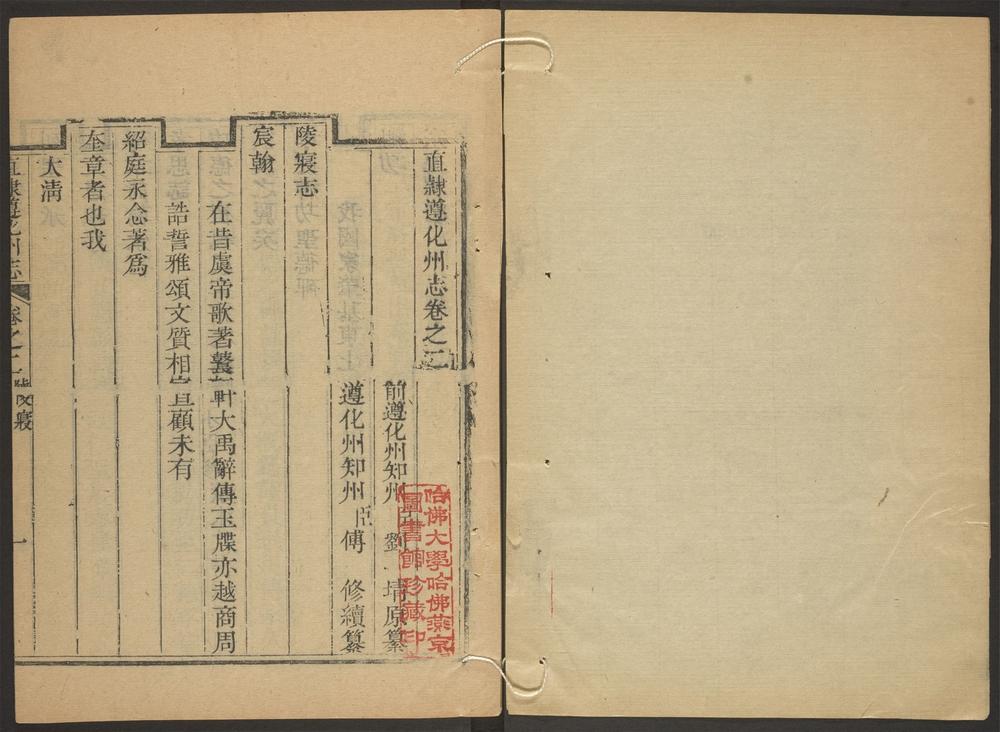 直隸遵化州志卷之二
前遵化州知州 劉 堉原纂
遵化州知州臣傅 修續纂
陵寢志
宸翰
在昔虞帝歌著蕤軒大禹辭傳玉牒亦越商周
誥誓雅頌文質相宣顧未有
紹庭永念著為
奎章者也我
大清
直隸遵化州志 卷之二 陵寢 一
哈佛大學哈佛燕京
圖書館珍藏印